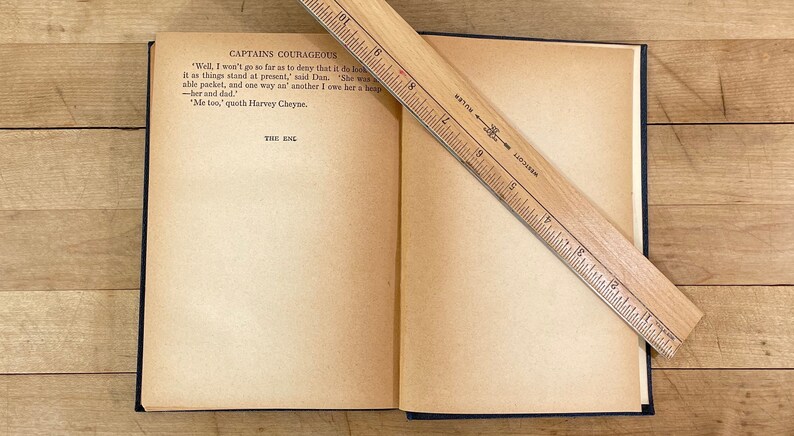 CAPTAINS COURAGEOUS
'Well, I won't go so far as to deny that it do loo
it as things stand at present,' said Dan. 'She was a
able packet, and one way an' another I owe her a heap
—her and dad.'
'Me too,' quoth Harvey Cheyne.
THE END
10
9
8
7
6
5
4
3
2
1
WESTCOTT
RULER